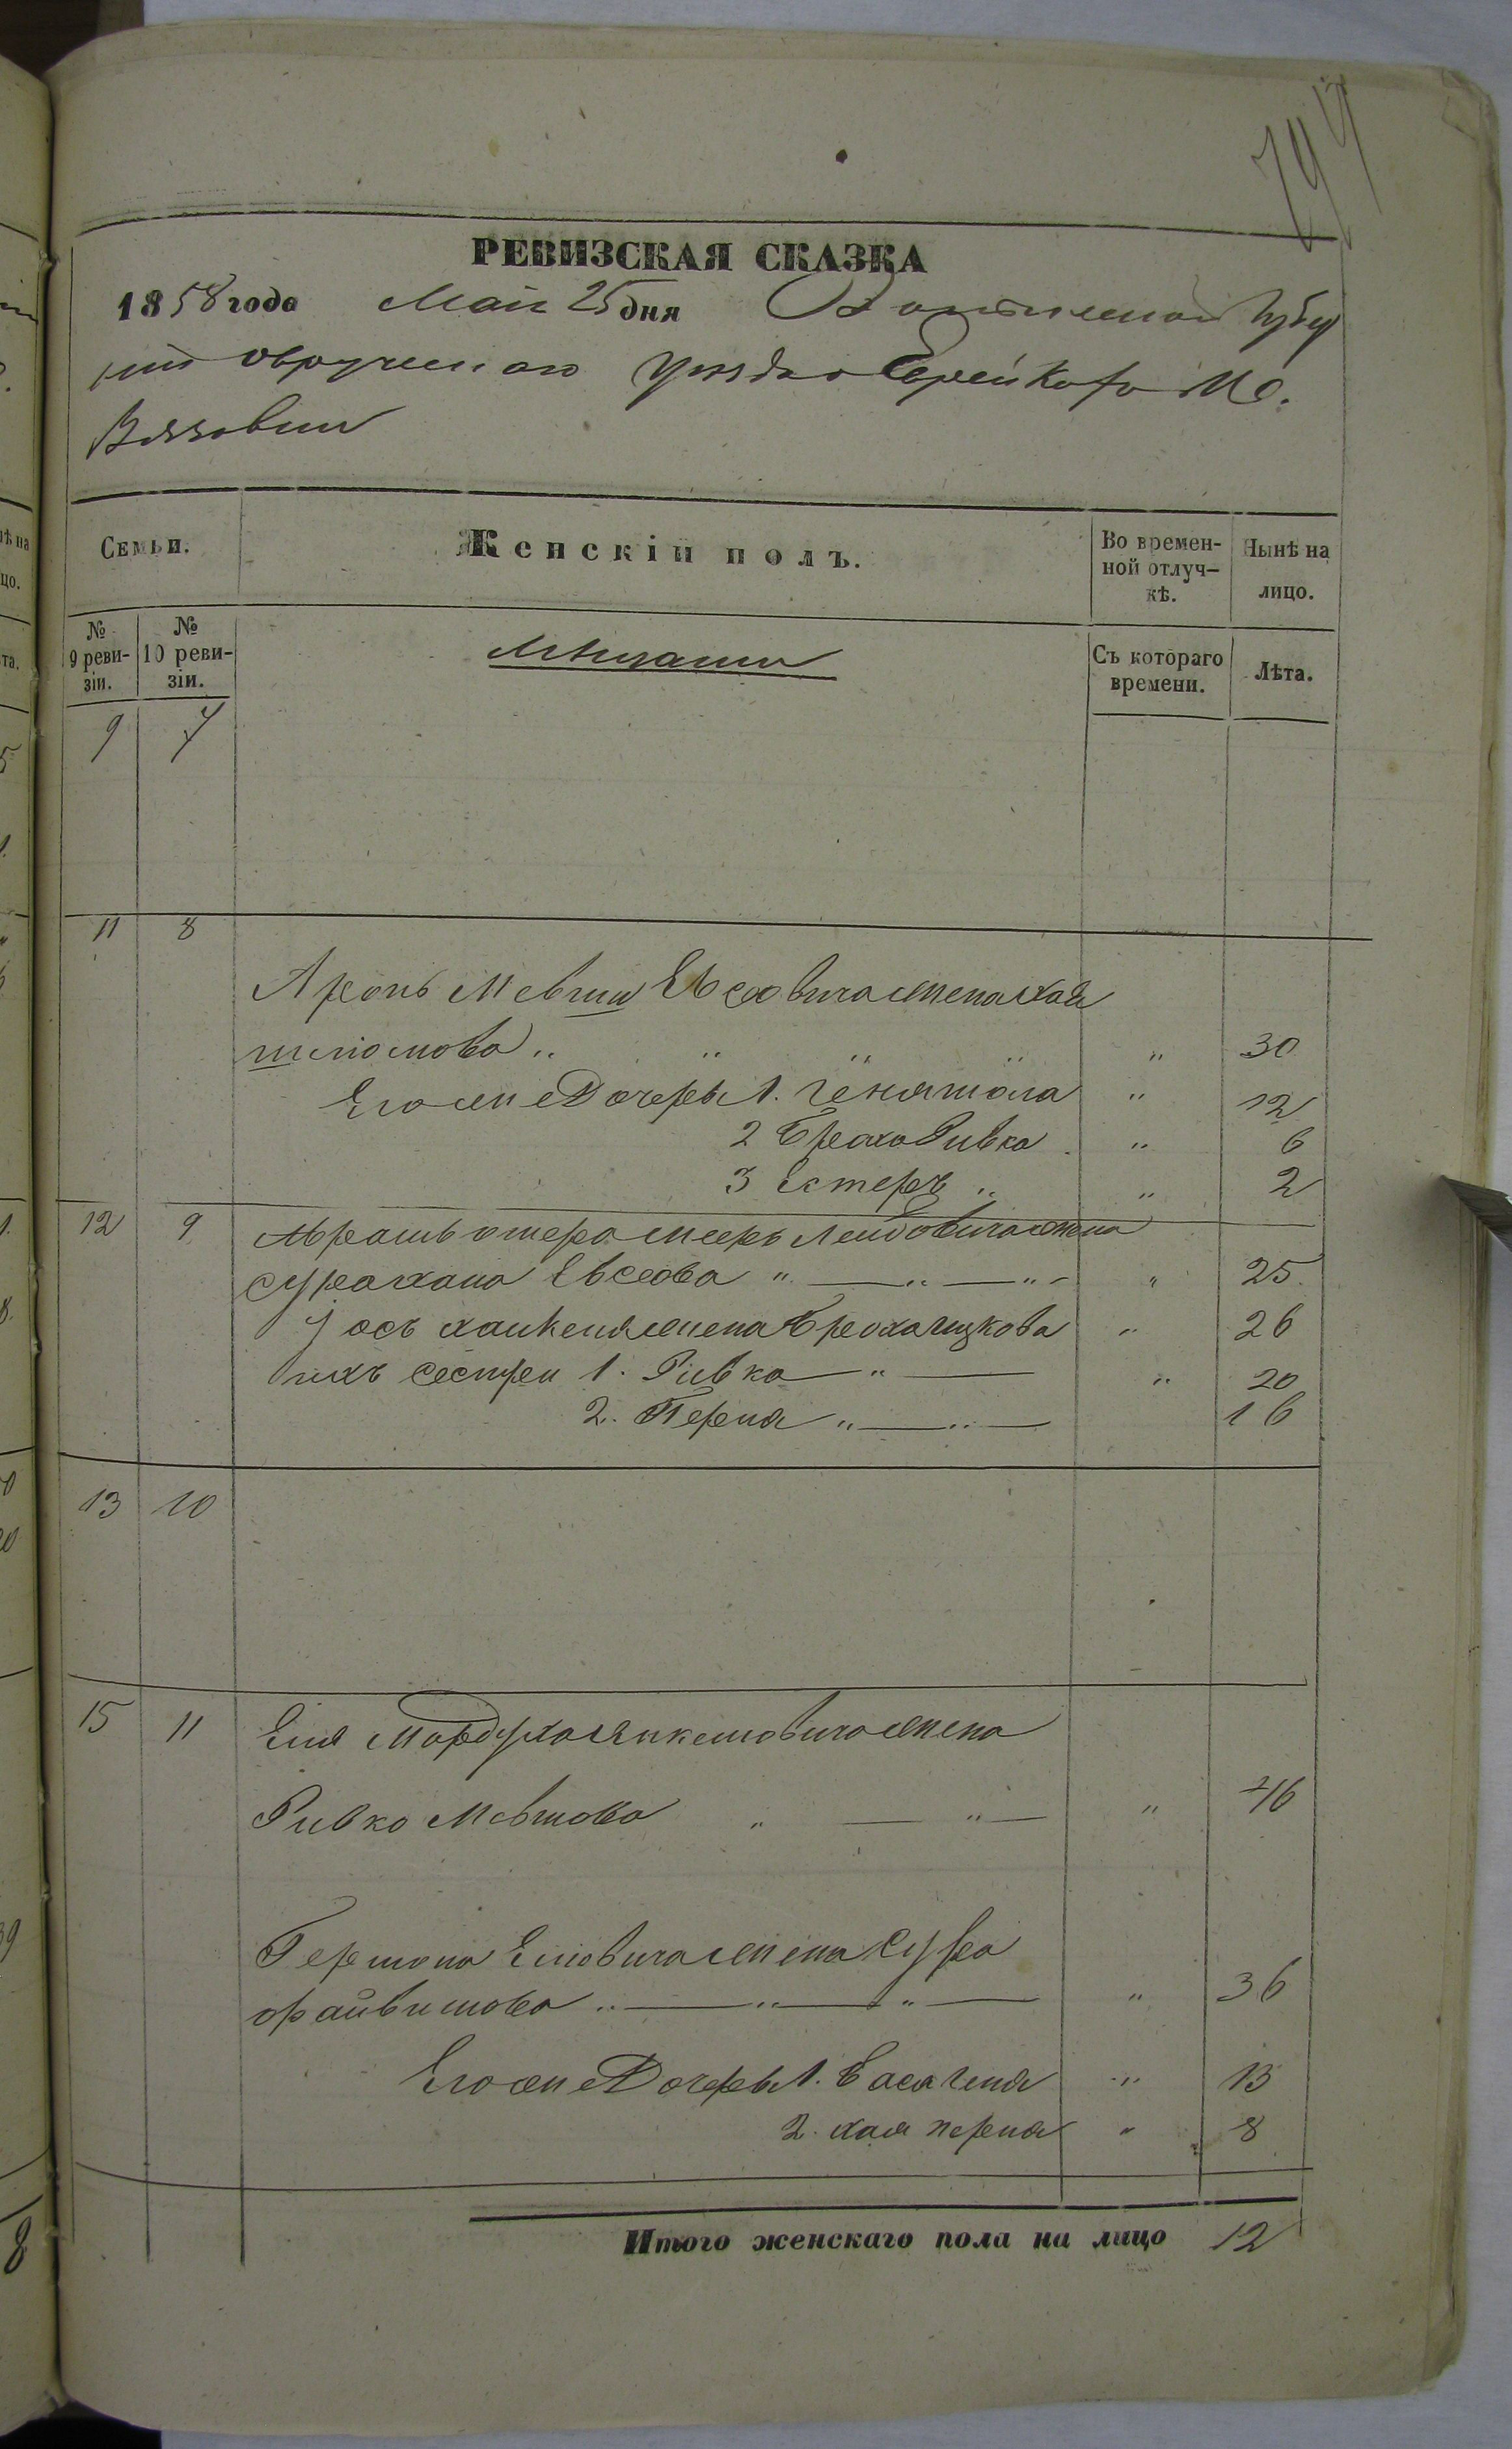 РЕВИЗСКАЯ СКАЗКА
1858 года Мая 25 дня Волынской Губер
ніи Овручскаго Уѣзда Еврейкаго М.
Вязовки
Семьи. Женскій полъ. Во времен-ной отлуч-кѣ. Нынѣ на лицо.
№ 9 реви-зіи. № 10 реви-зіи. Мѣщани Съ котораго времени. Лѣта.
9 7
11 8
Аронъ Мевши Евсеовича жена Хая
шлiомова .. .. .. .. „ 30
Его же Дочеры 1. Геня „ 12
2 Брахо Ривка „ 6
3 Естеръ .. „ 2
12 9 Аврамъ Мееръ Лейбовича жена
Сура хана Евсеова „ — „ — „ „ 25
Іось жена Бреоха Ицкова „ 26
ихъ сестри 1. Ривка — „ — „ 20
2. Перия „ — „ — 16
13 10
15 11 Еля Мордуха Янкелiовича жена
Ривко Мевшова „ — „ — „ 46
Гершона Елiовича жена Сура
файвишова „ — „ — „ — „ 36
Его же Дочеры 1. Бася Геня „ 13
2. хая перля „ 8
Итого женскаго пола на лицо 12